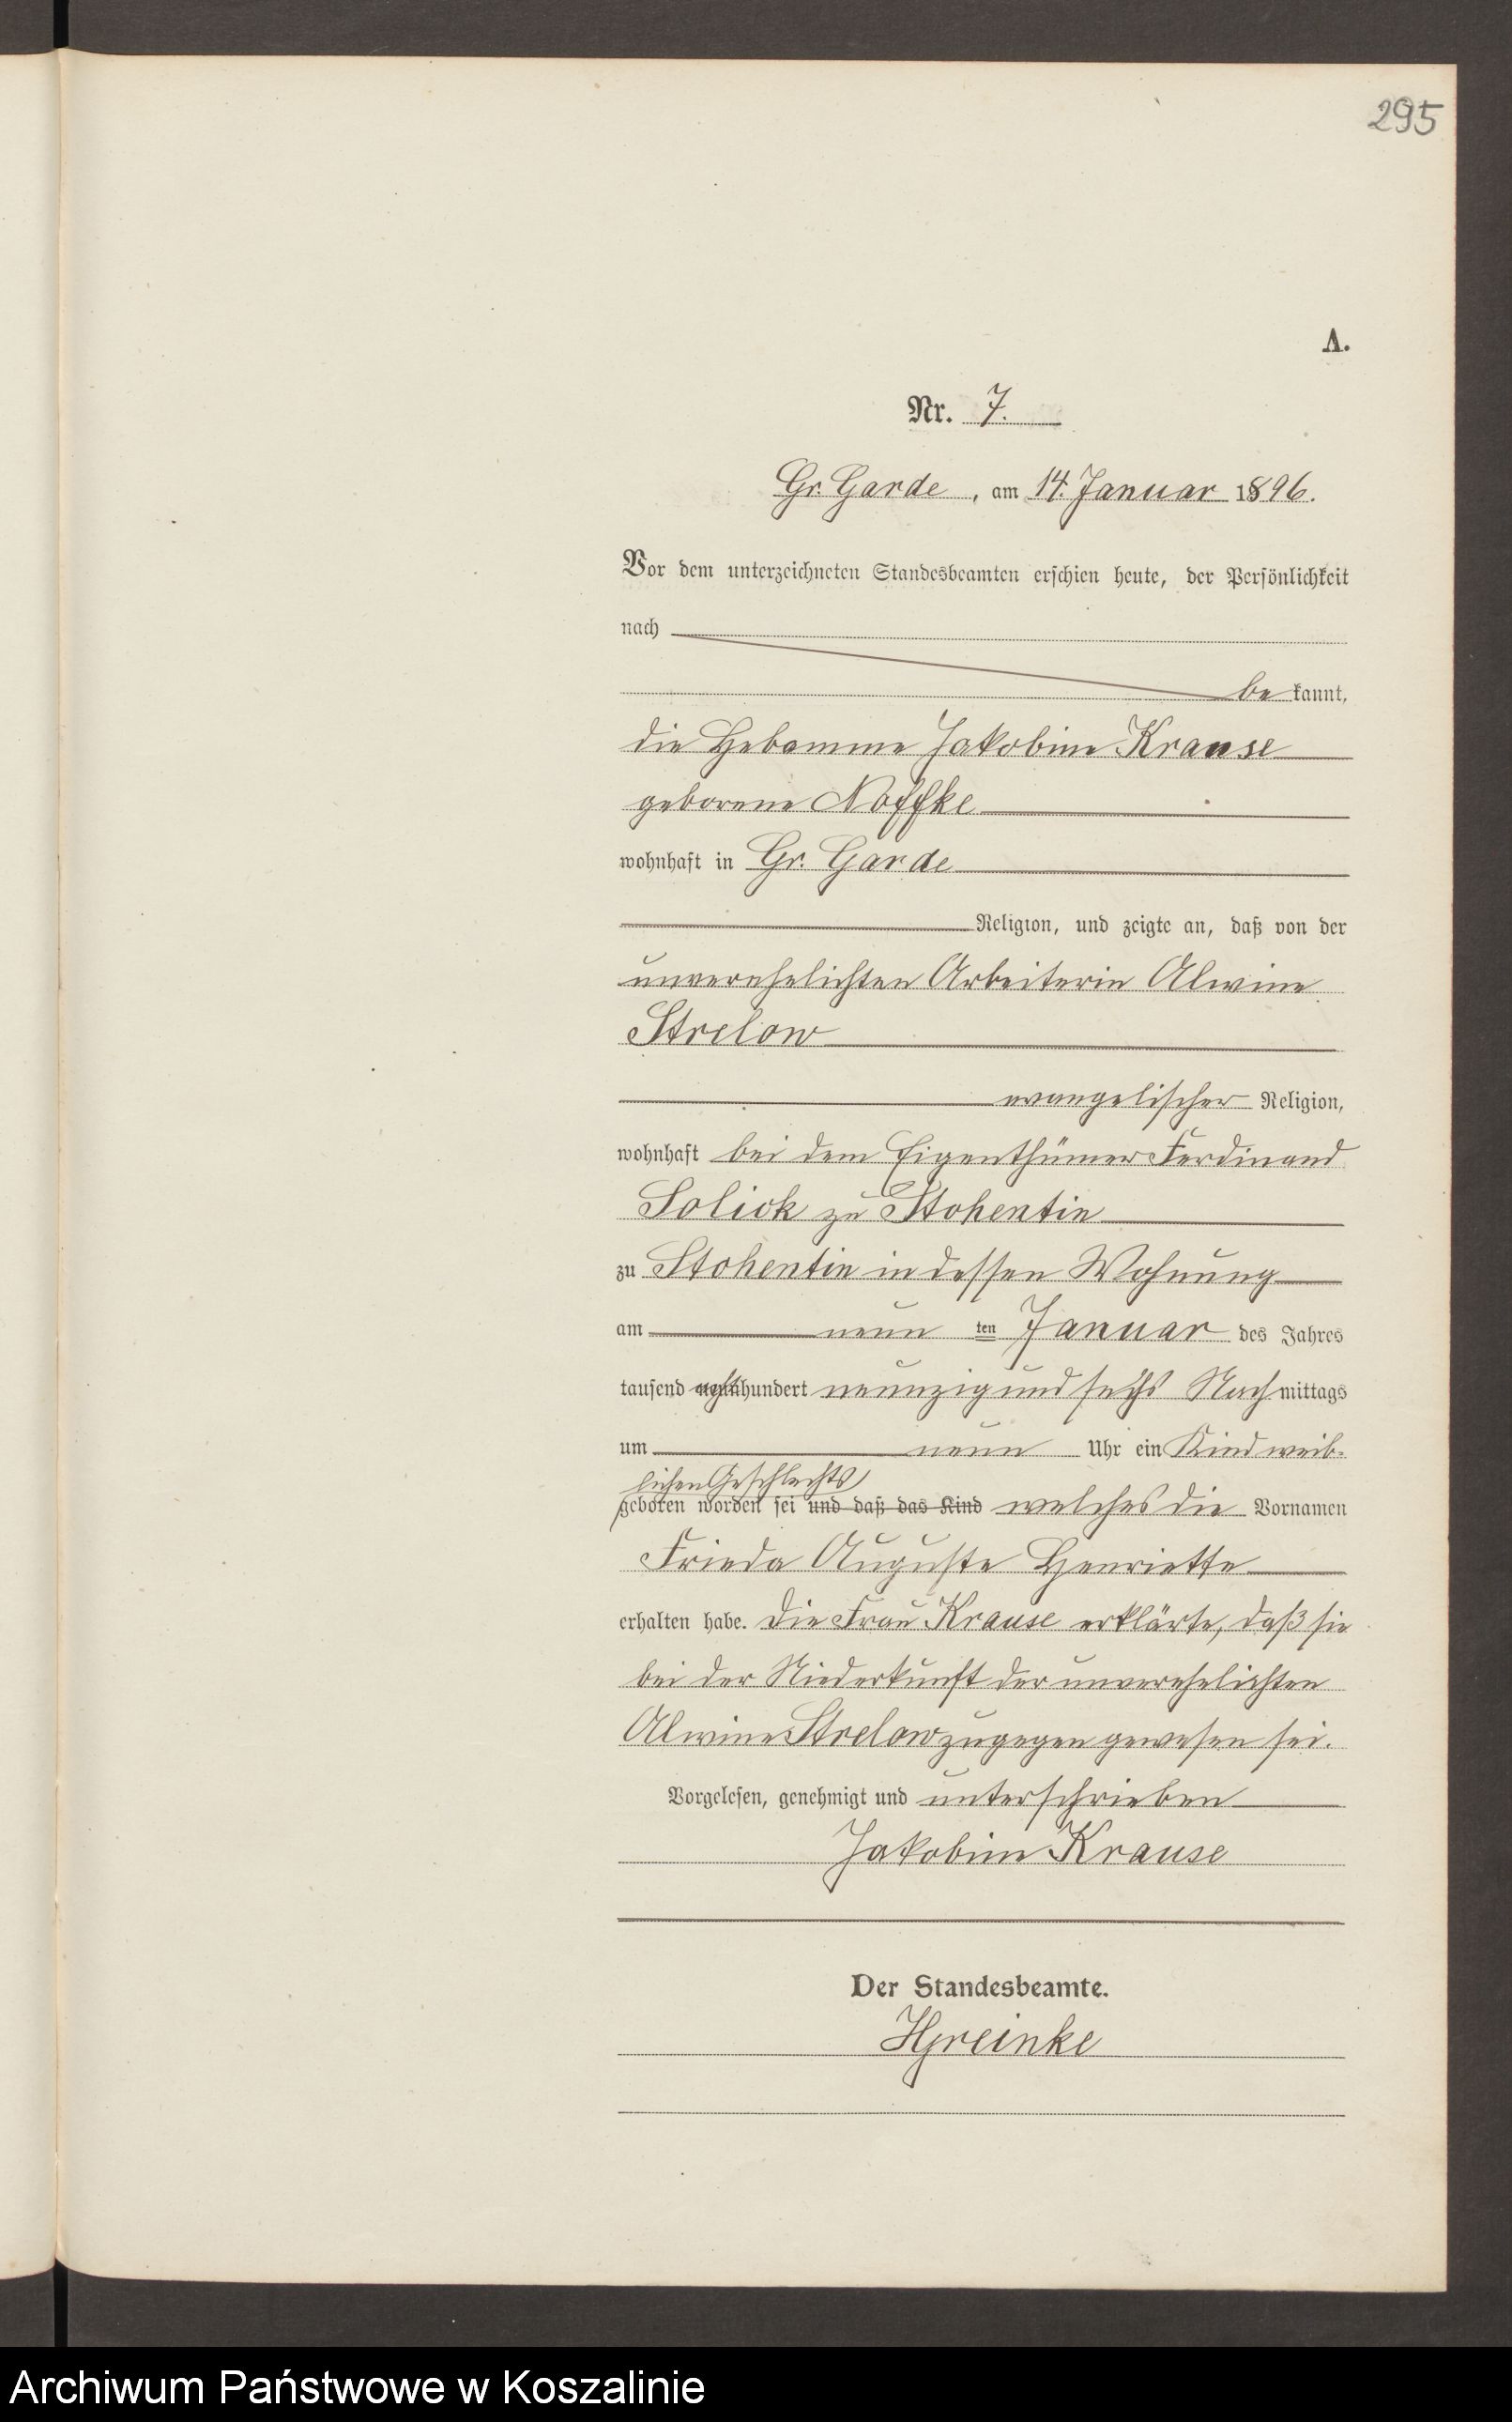 295
A.
Nr. 7.
Gr. Garde, am 14. Januar 1896.
Vor dem unterzeichneten Standesbeamten erschien heute, der Persönlichkeit
nach
be kannt,
die Hebamme Jakobine Krause
geborene Noffke
wohnhaft in Gr. Garde
Religion, und zeigte an, daß von der
unverehelichten Arbeiterin Alwine
Strelow
evangelischer Religion,
wohnhaft bei dem Eigenthümer Ferdinand
Solick zu Stohentin
zu Stohentin in dessen Wohnung
am neun ten Januar des Jahres
tausend acht hundert neunzig und sechs Nach mittags
um neun Uhr ein Kind weib-
lichen Geschlechts
geboren worden sei und daß das Kind welches die Vornamen
Frieda Auguste Henriette
erhalten habe. Die Frau Krause erklärte, daß sie
bei der Niederkunft der unverehelichten
Alwine Strelow zugegen gewesen sei.
Vorgelesen, genehmigt und unterschrieben
Jakobine Krause
Der Standesbeamte.
Archiwum Państwowe w Koszalinie